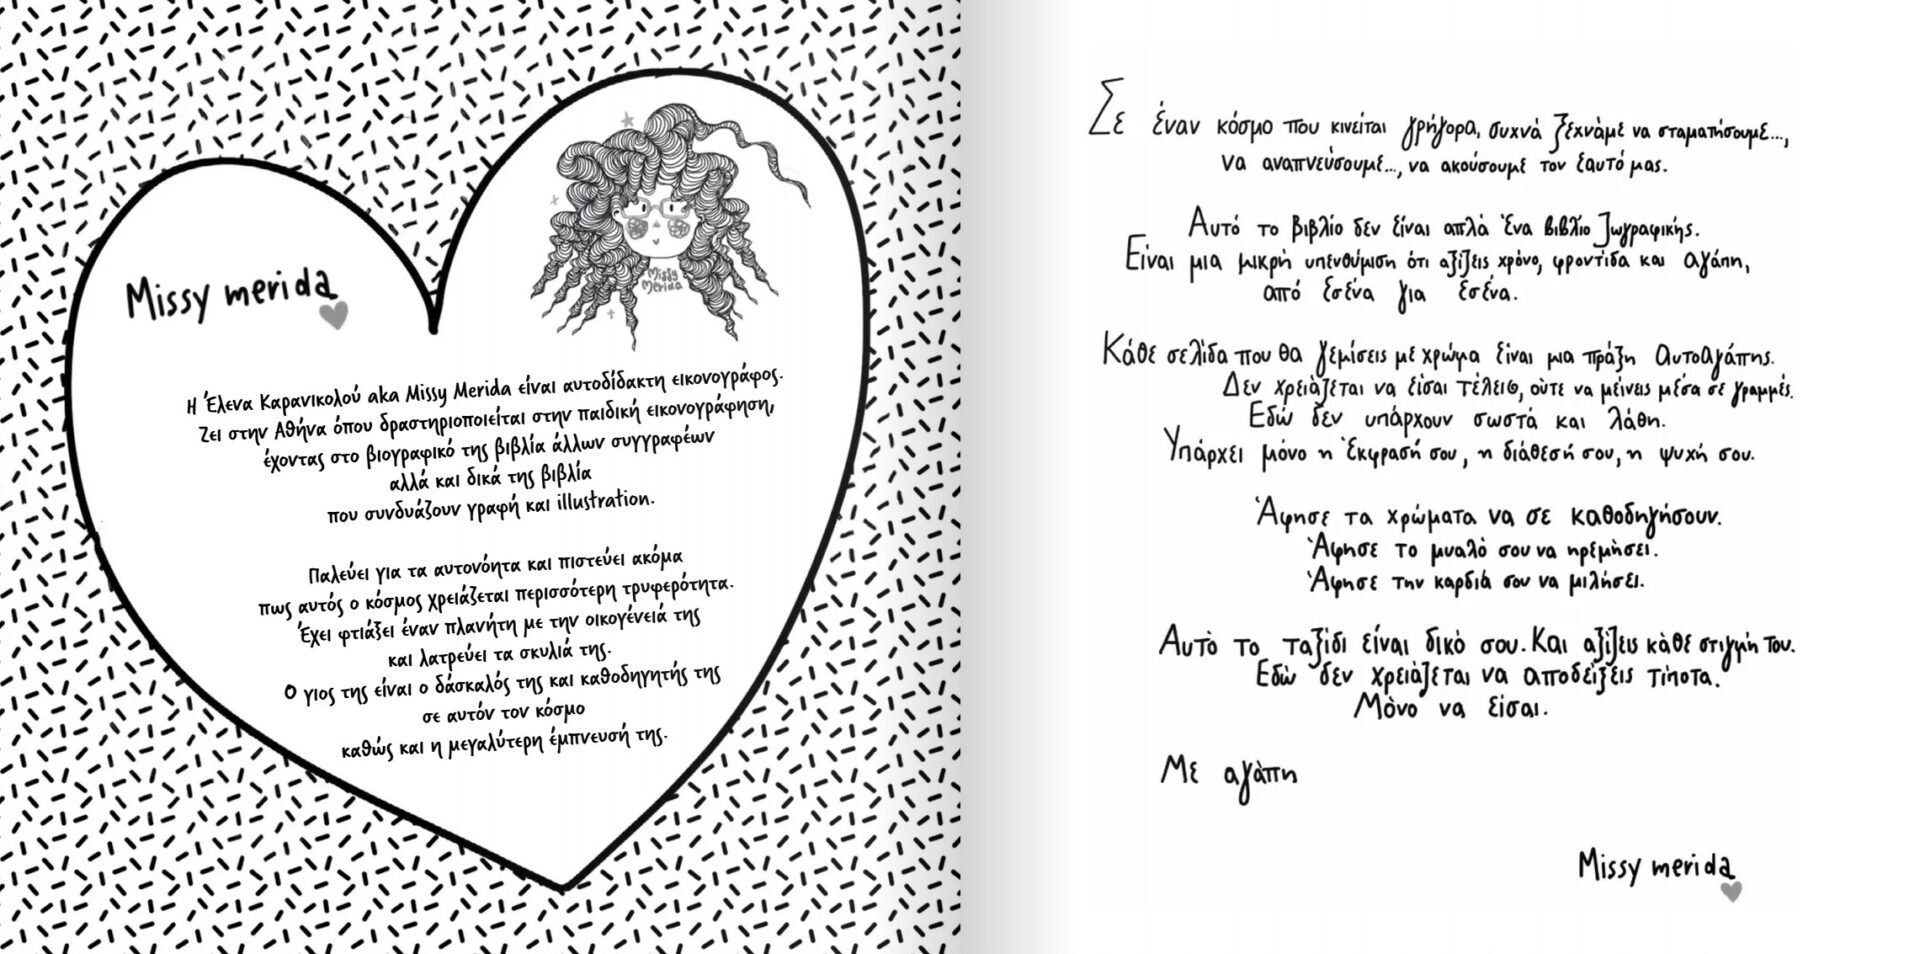 Missy merida
Missy
Merida
Η Έλενα Καρανικολού aka Missy Merida είναι αυτοδίδακτη εικονογράφος.
Ζει στην Αθήνα όπου δραστηριοποιείται στην παιδική εικονογράφηση,
έχοντας στο βιογραφικό της βιβλία άλλων συγγραφέων
αλλά και δικά της βιβλία
που συνδυάζουν γραφή και illustration.
Παλεύει για τα αυτονόητα και πιστεύει ακόμα
πως αυτός ο κόσμος χρειάζεται περισσότερη τρυφερότητα.
Έχει φτιάξει έναν πλανήτη με την οικογένειά της
και λατρεύει τα σκυλιά της.
Ο γιος της είναι ο δάσκαλός της και καθοδηγητής της
σε αυτόν τον κόσμο
καθώς και η μεγαλύτερη έμπνευσή της.
Σε έναν κόσμο που κινείται γρήγορα, συχνά ξεχνάμε να σταματήσουμε...,
να αναπνεύσουμε..., να ακούσουμε τον εαυτό μας.
Αυτό το βιβλίο δεν είναι απλά ένα βιβλίο ζωγραφικής.
Είναι μια μικρή υπενθύμιση ότι αξίζεις χρόνο, φροντίδα και αγάπη,
από εσένα για εσένα.
Κάθε σελίδα που θα γεμίσεις με χρώμα είναι μια πράξη αυτοαγάπης.
Δεν χρειάζεται να είσαι τέλειο, ούτε να μείνεις μέσα σε γραμμές.
Εδώ δεν υπάρχουν σωστά και λάθη.
Υπάρχει μόνο η έκφρασή σου, η διάθεσή σου, η ψυχή σου.
Άφησε τα χρώματα να σε καθοδηγήσουν.
Άφησε το μυαλό σου να ηρεμήσει.
Άφησε την καρδιά σου να μιλήσει.
Αυτό το ταξίδι είναι δικό σου. Και αξίζεις κάθε στιγμή του.
Εδώ δεν χρειάζεται να αποδείξεις τίποτα.
Μόνο να είσαι.
Με αγάπη
Missy merida